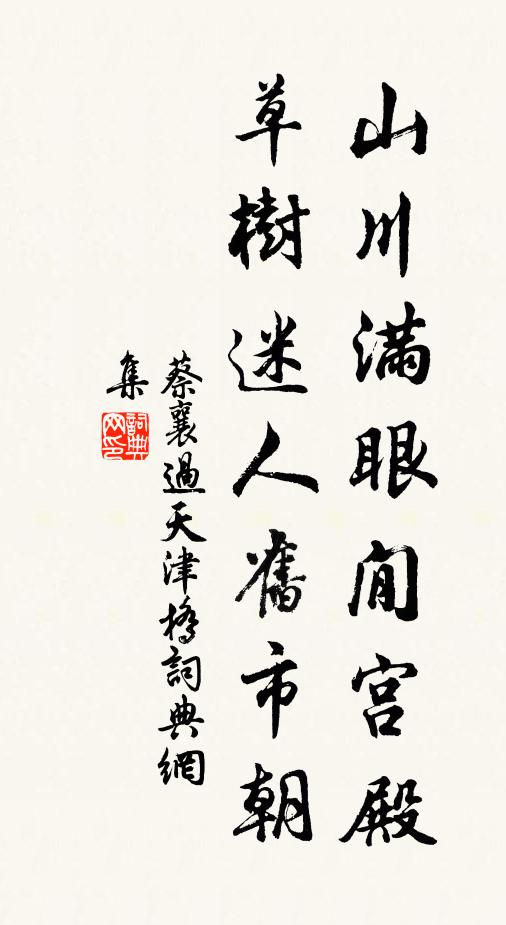 山川滿眼閒宮殿
草樹迷人舊市朝
蔡襄過天津橋詞典網
集
詞典
网印